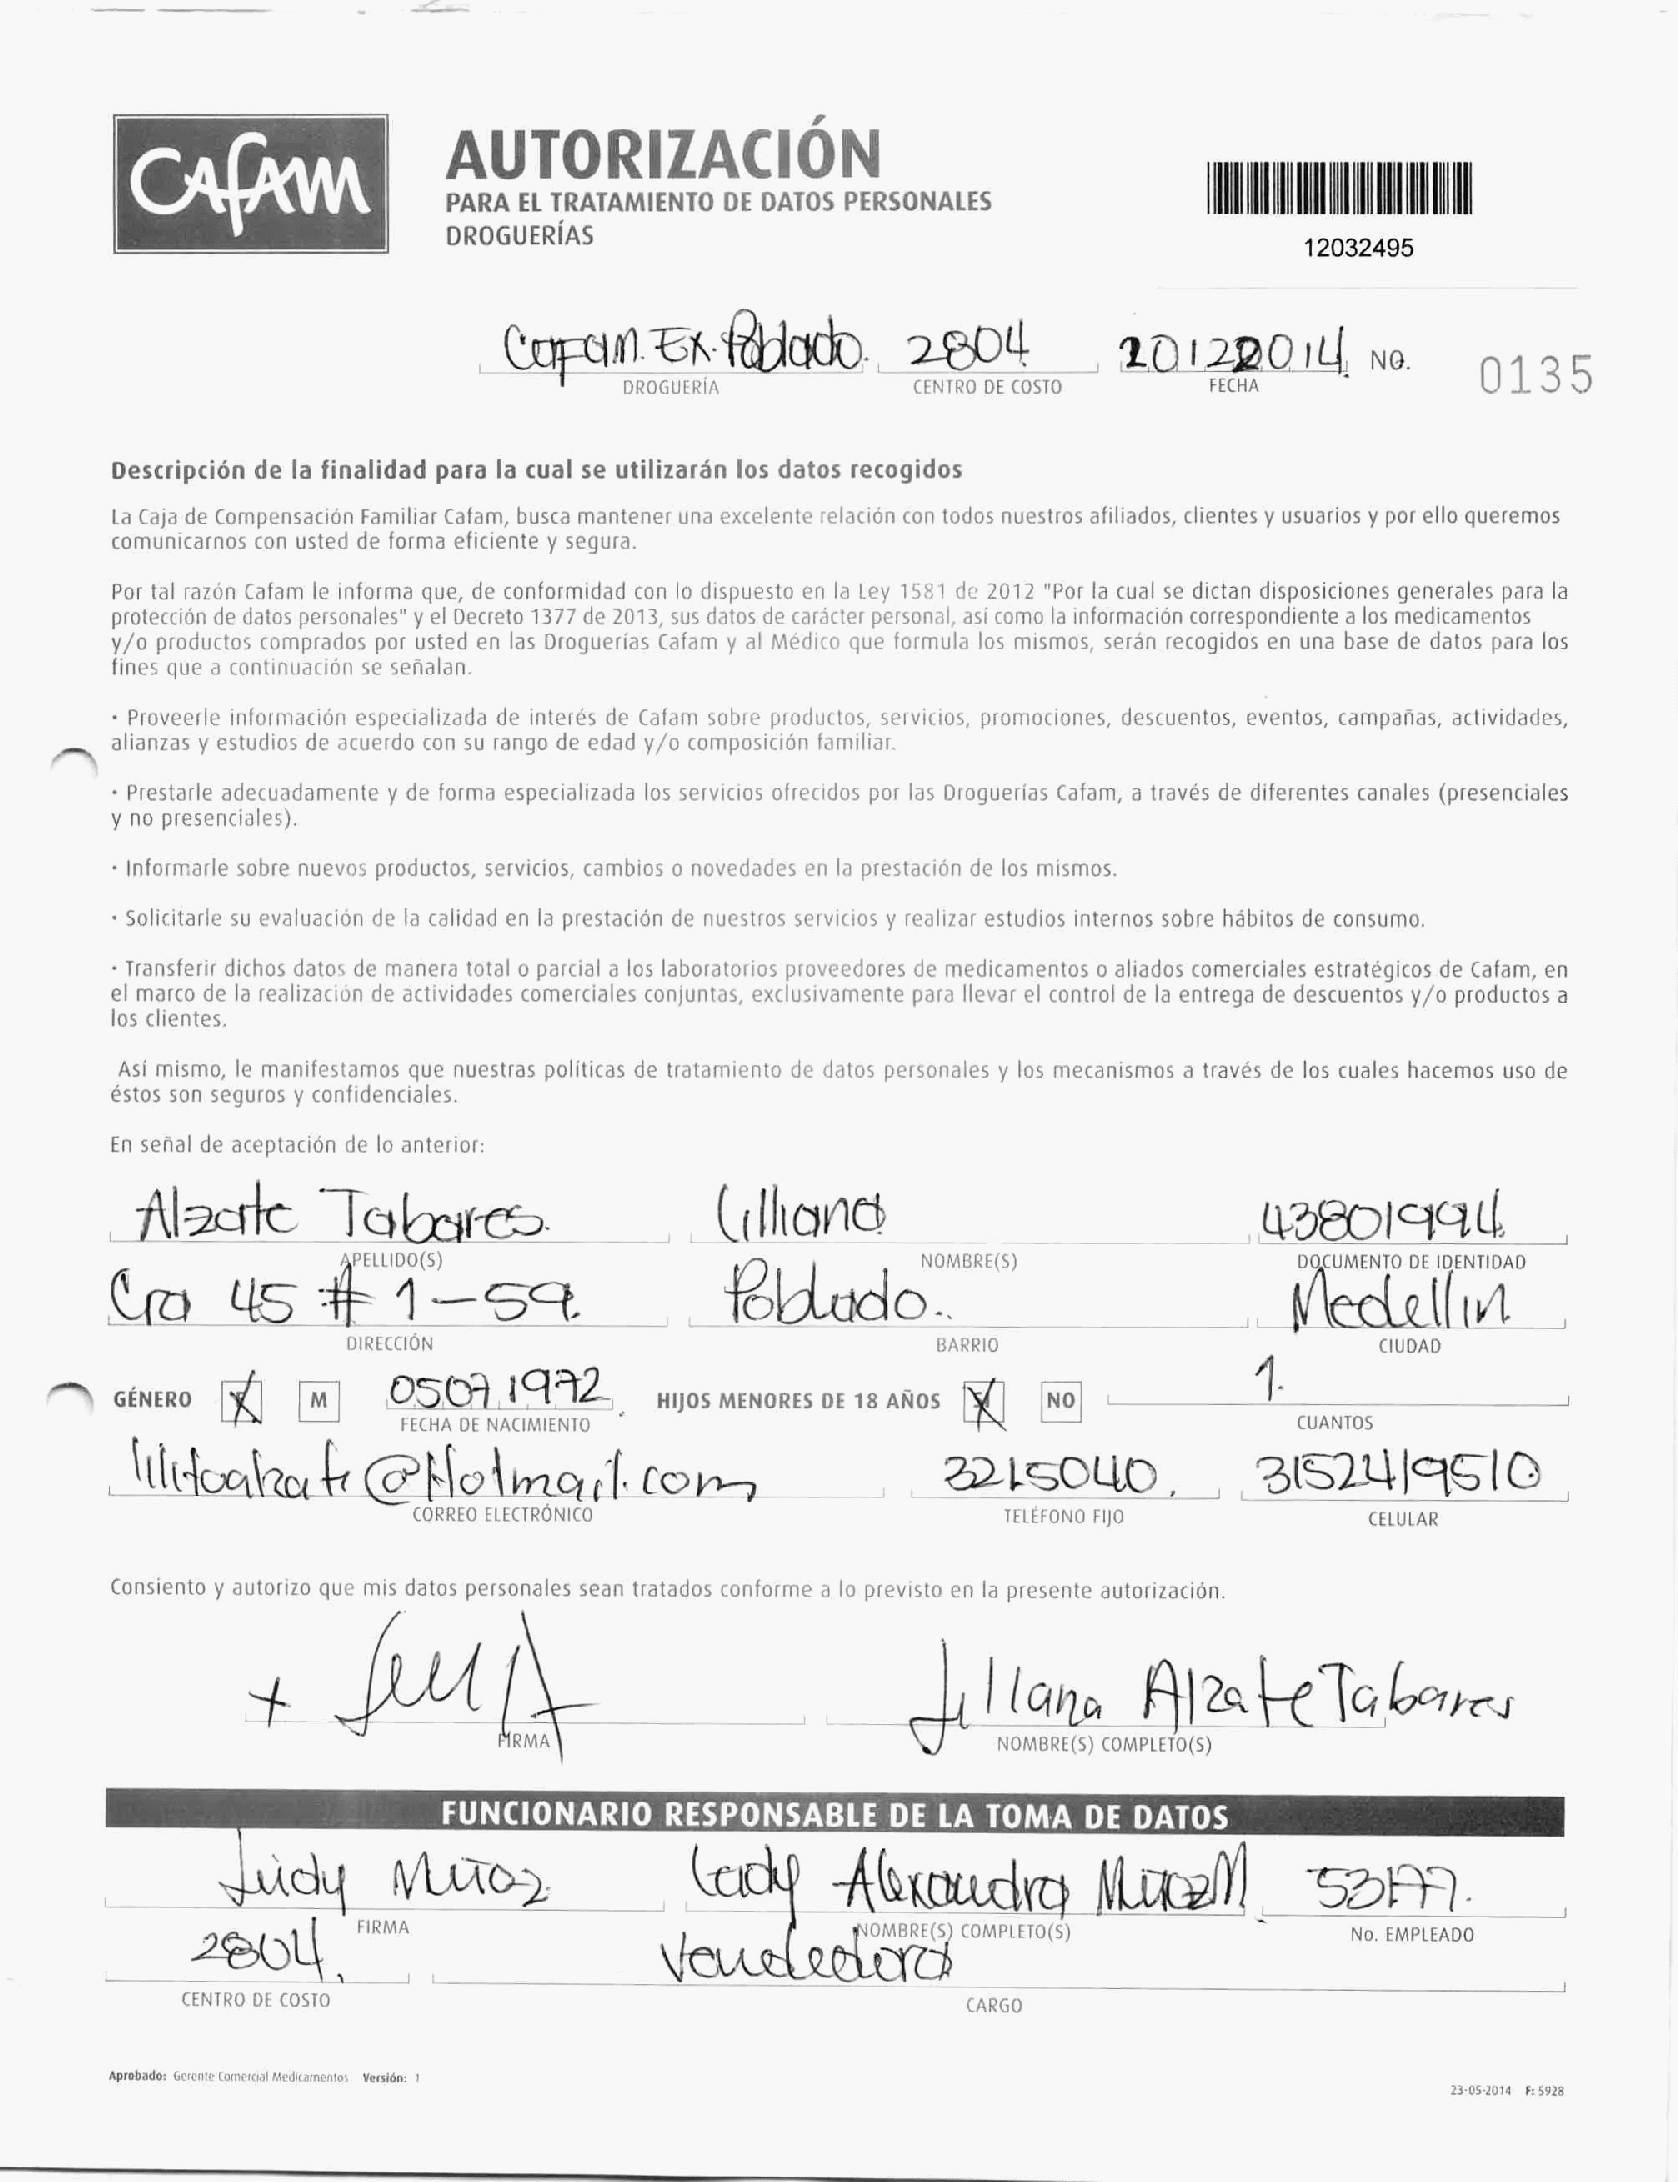 CAFAM
AUTORIZACIÓN
PARA EL TRATAMIENTO DE DATOS PERSONALES
DROGUERÍAS
12032495
Cafam. Ex. Poblado. 2804 20122014 NO. 0135
DROGUERÍA CENTRO DE COSTO FECHA
Descripción de la finalidad para la cual se utilizarán los datos recogidos
La Caja de Compensación Familiar Cafam, busca mantener una excelente relación con todos nuestros afiliados, clientes y usuarios y por ello queremos
comunicarnos con usted de forma eficiente y segura.
Por tal razón Cafam le informa que, de conformidad con lo dispuesto en la Ley 1581 de 2012 "Por la cual se dictan disposiciones generales para la
protección de datos personales" y el Decreto 1377 de 2013, sus datos de carácter personal, así como la información correspondiente a los medicamentos
y/o productos comprados por usted en las Droguerías Cafam y al Médico que formula los mismos, serán recogidos en una base de datos para los
fines que a continuación se señalan.
· Proveerle información especializada de interés de Cafam sobre productos, servicios, promociones, descuentos, eventos, campañas, actividades,
alianzas y estudios de acuerdo con su rango de edad y/o composición familiar.
· Prestarle adecuadamente y de forma especializada los servicios ofrecidos por las Droguerías Cafam, a través de diferentes canales (presenciales
y no presenciales).
· Informarle sobre nuevos productos, servicios, cambios o novedades en la prestación de los mismos.
· Solicitarle su evaluación de la calidad en la prestación de nuestros servicios y realizar estudios internos sobre hábitos de consumo.
· Transferir dichos datos de manera total o parcial a los laboratorios proveedores de medicamentos o aliados comerciales estratégicos de Cafam, en
el marco de la realización de actividades comerciales conjuntas, exclusivamente para llevar el control de la entrega de descuentos y/o productos a
los clientes.
Así mismo, le manifestamos que nuestras políticas de tratamiento de datos personales y los mecanismos a través de los cuales hacemos uso de
éstos son seguros y confidenciales.
En señal de aceptación de lo anterior:
Alzate Tabares. Lilliana 43801994
APELLIDO(S) NOMBRE(S) DOCUMENTO DE IDENTIDAD
Cra 45 # 1-59. Poblado.. Medellin
DIRECCIÓN BARRIO CIUDAD
GÉNERO X M 05071972 HIJOS MENORES DE 18 AÑOS X NO 1.
FECHA DE NACIMIENTO CUANTOS
@Hotmail.com 3215040 3152419510
CORREO ELECTRÓNICO TELÉFONO FIJO CELULAR
Consiento y autorizo que mis datos personales sean tratados conforme a lo previsto en la presente autorización.
Liliana Alzate Tabares
FIRMA NOMBRE(S) COMPLETO(S)
FUNCIONARIO RESPONSABLE DE LA TOMA DE DATOS
Leidy Alexandra 53177.
FIRMA NOMBRE(S) COMPLETO(S) No. EMPLEADO
2804. Vendedora
CENTRO DE COSTO CARGO
Aprobado: Gerente Comercial Medicamentos Versión: 1
23-05-2014 F: 5928